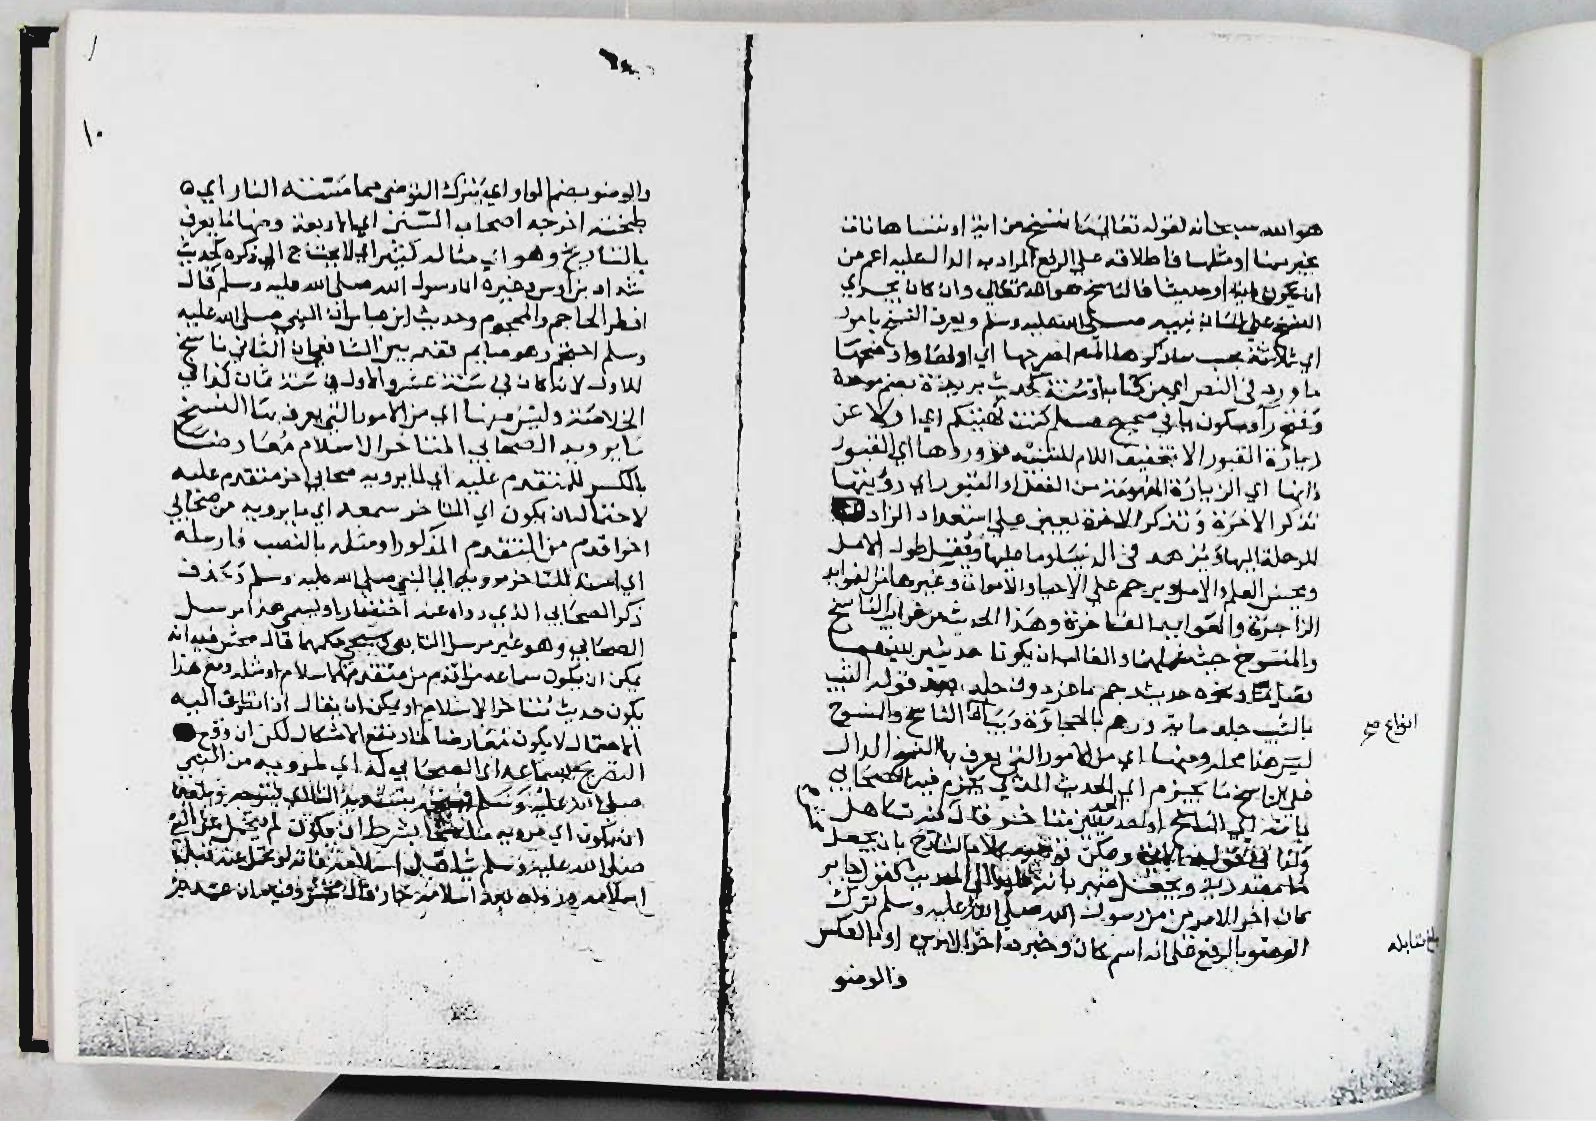 هو الله سبحانه لقوله تعالى ما ننسخ من اية او ننساها نات
بخير منها او مثلها فاطلاقه على الرفع المراد به الدال عليه اعم من
ان يكون اية او حديثا فالناسخ هو الله تعالى وان كان يجري
النسخ على لسان نبيه صلى الله عليه وسلم ويعرف النسخ بامور
اي ثلاثة بحسب ما ذكر هنا اصرحها اي اولها واوضحها
ما ورد في النص اي من كتاب او سنة كحديث بريدة بضم موحدة
وفتح را وسكون يا في صحيح مسلم كنت نهيتكم اي اولا عن
زيارة القبور الا بتخفيف اللام للتنبيه فزوروها اي القبور
فانها اي الزيارة المفهومة من الفعل او القبور اي رؤيتها
تذكر الاخرة وتذكر الاخرة يعين على استعداد الزاد
للرحلة اليها ويزهد في الدنيا وما عليها ويقلل طول الامل
ويحسن العلم والعمل ويرحم على الاحياء والاموات وغيرها من الفوايد
الزاجرة والعوايد الفاخرة وهذا الحديث من غرايب الناسخ
والمنسوخ حيث والغالب ان يكونا حديثين بينهما
ونحوه حديث رجم ماعز دون جلده بعد قوله الثيب
بالثيب جلد ماية ورجم بالحجارة وبيان الناسخ والمنسوخ
ليس هنا محله ومنها اي من الامور التي يعرف بها النسخ الدال
على الناسخ ما يجزم اي الحديث الذي يجزم فيه الصحابي
بانه اي الناسخ او احد الحديثين متاخر قال كذا
وكذا في ويمكن بلام التاريخ بان يجعل
ويجعل ضمير بانه الى الحديث كقول جابر
كان اخر الامرين من رسول الله صلى الله عليه وسلم ترك
الوضو بالرفع على انه اسم كان وخبره اخر الامرين او بالعكس
والوضو
بلغ مقابلة
١٠
والوضو بضم الواو اي يترك التوضي مما مسته النار اي
طبخته اخرجه اصحاب السنن اي الاربعة ومنها ما يعرف
بالتاريخ وهو اي مثاله كثير اي لا يحتاج الى ذكره كحديث
شداد بن اوس وغيره ان رسول الله صلى الله عليه وسلم قال
افطر الحاجم والمحجوم وحديث ابن عباس ان النبي صلى الله عليه
وسلم احتجم وهو صايم فقد بين الشافعي ان الثاني ناسخ
للاول لانه كان في سنة عشر والاول في سنة ثمان كذا في
الخلاصة وليس منها اي من الامور التي يعرف بها النسخ
ما يرويه الصحابي المتاخر الاسلام معارضا
بالكسر للمتقدم عليه اي لما يرويه صحابي اخر متقدم عليه
لاحتمال ان يكون اي المتاخر سمعه اي ما يرويه من صحابي
اخر اقدم من المتقدم المذكور او مثله بالنصب فارسله
اي اسند المتاخر مرويه الى النبي صلى الله عليه وسلم وحذف
ذكر الصحابي الذي رواه عنه اختصارا ويسمى هذا مرسل
الصحابي وهو غير مرسل التابعي وسيجي حكمهما قال محش فيه انه
يمكن ان يكون سماعه من اقدم من متقدمهما اسلاما او مثله ومع هذا
يكون حديث متاخر الاسلام او يمكن ان يقال اذا تطرق اليه
الاحتمال لا يكون معارضا فاندفع الاشكال لكن ان وقع
التصريح بسماعه اي الصحابي كذا اي لمرويه من النبي
صلى الله عليه وسلم فيتجه بتشديد التا اي
ان يكون اي مرويه ناسخا بشرط ان يكون لم يتحمل عن النبي
صلى الله عليه وسلم شيا قبل اسلامه فانه لو تحمل عنه قبل
اسلامه ورواه بعد اسلامه جاز قال محش وفيه ان